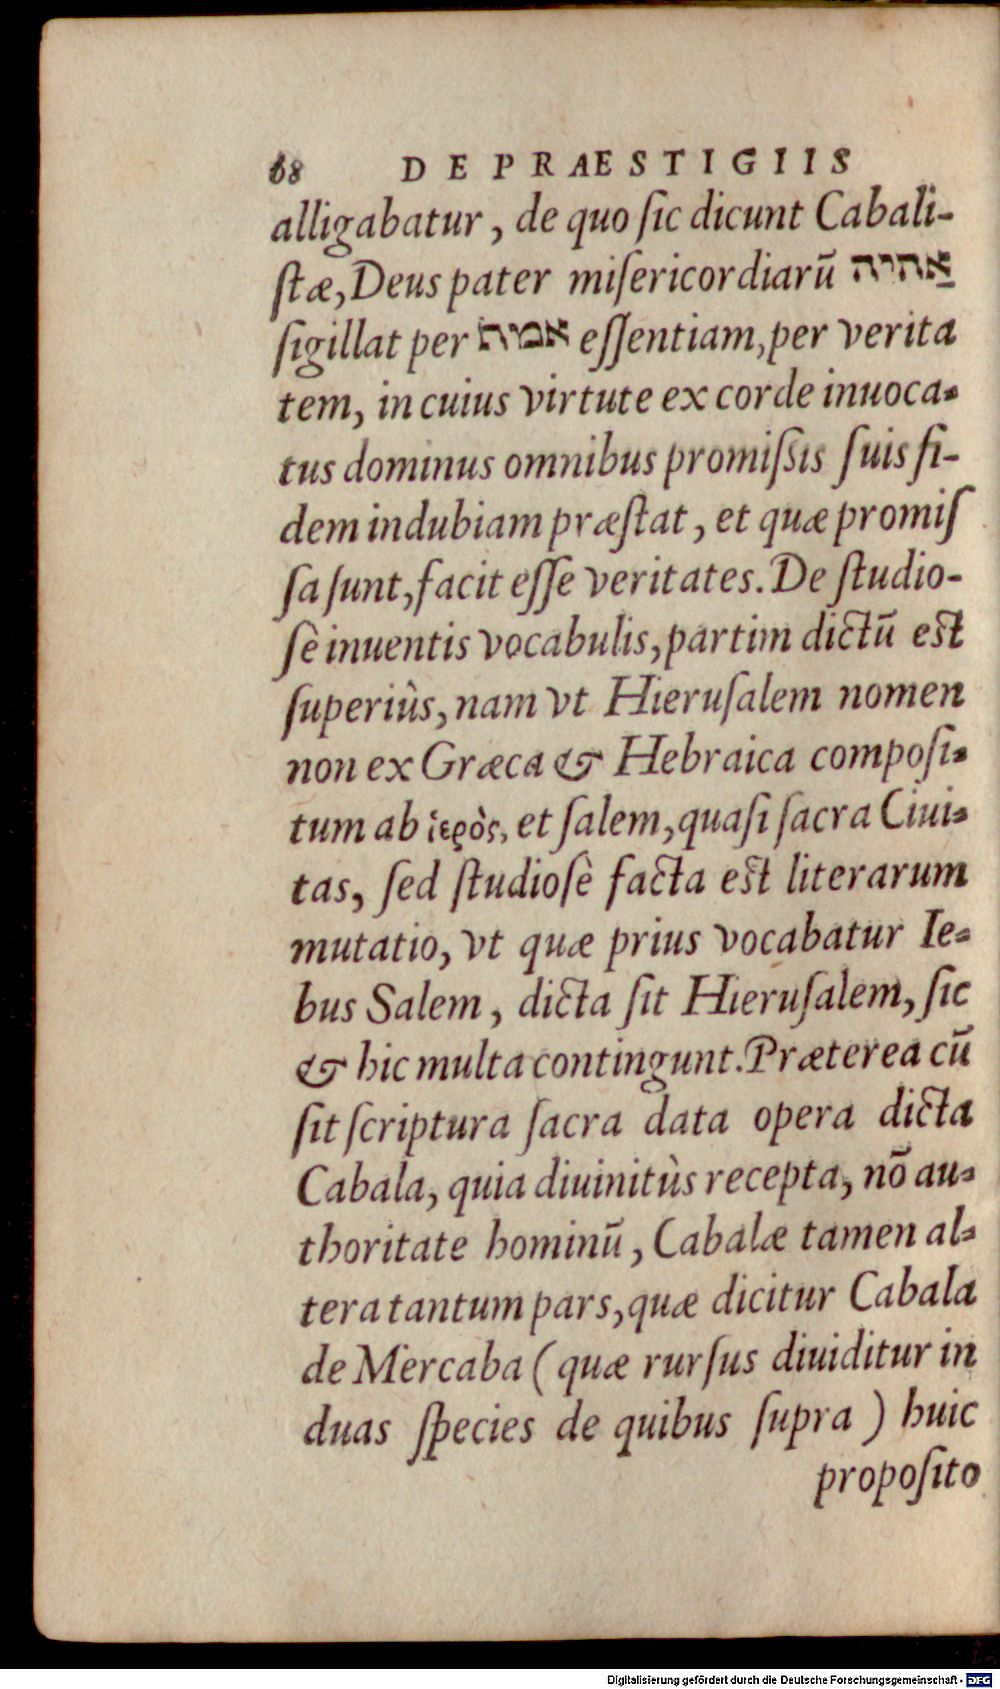 68 DE PRAESTIGIIS
alligabatur, de quo ſic dicunt Cabali-
ſtæ, Deus pater miſericordiarũ אהיה
ſigillat per אמיה eſſentiam, per verita
tem, in cuius virtute ex corde inuoca-
tus dominus omnibus promiſsis ſuis fi-
dem indubiam præſtat, et quæ promiſ
ſa ſunt, facit eſſe veritates. De ſtudio-
ſè inuentis vocabulis, partim dictũ est
ſuperiùs, nam vt Hieruſalem nomen
non ex Græca & Hebraica compoſi-
tum ab ἱερὸς, et ſalem, quaſi ſacra Ciui-
tas, ſed ſtudioſè facta est literarum
mutatio, vt quæ prius vocabatur Ie-
bus Salem, dicta ſit Hieruſalem, ſic
& hic multa contingunt. Præterea cũ
ſit ſcriptura ſacra data opera dicta
Cabala, quia diuinitùs recepta, nō au-
thoritate hominũ, Cabalæ tamen al-
tera tantum pars, quæ dicitur Cabala
de Mercaba (quæ rurſus diuiditur in
duas ſpecies de quibus ſupra) huic
propoſito
Digitalisierung gefördert durch die Deutsche Forschungsgemeinschaft - DFG